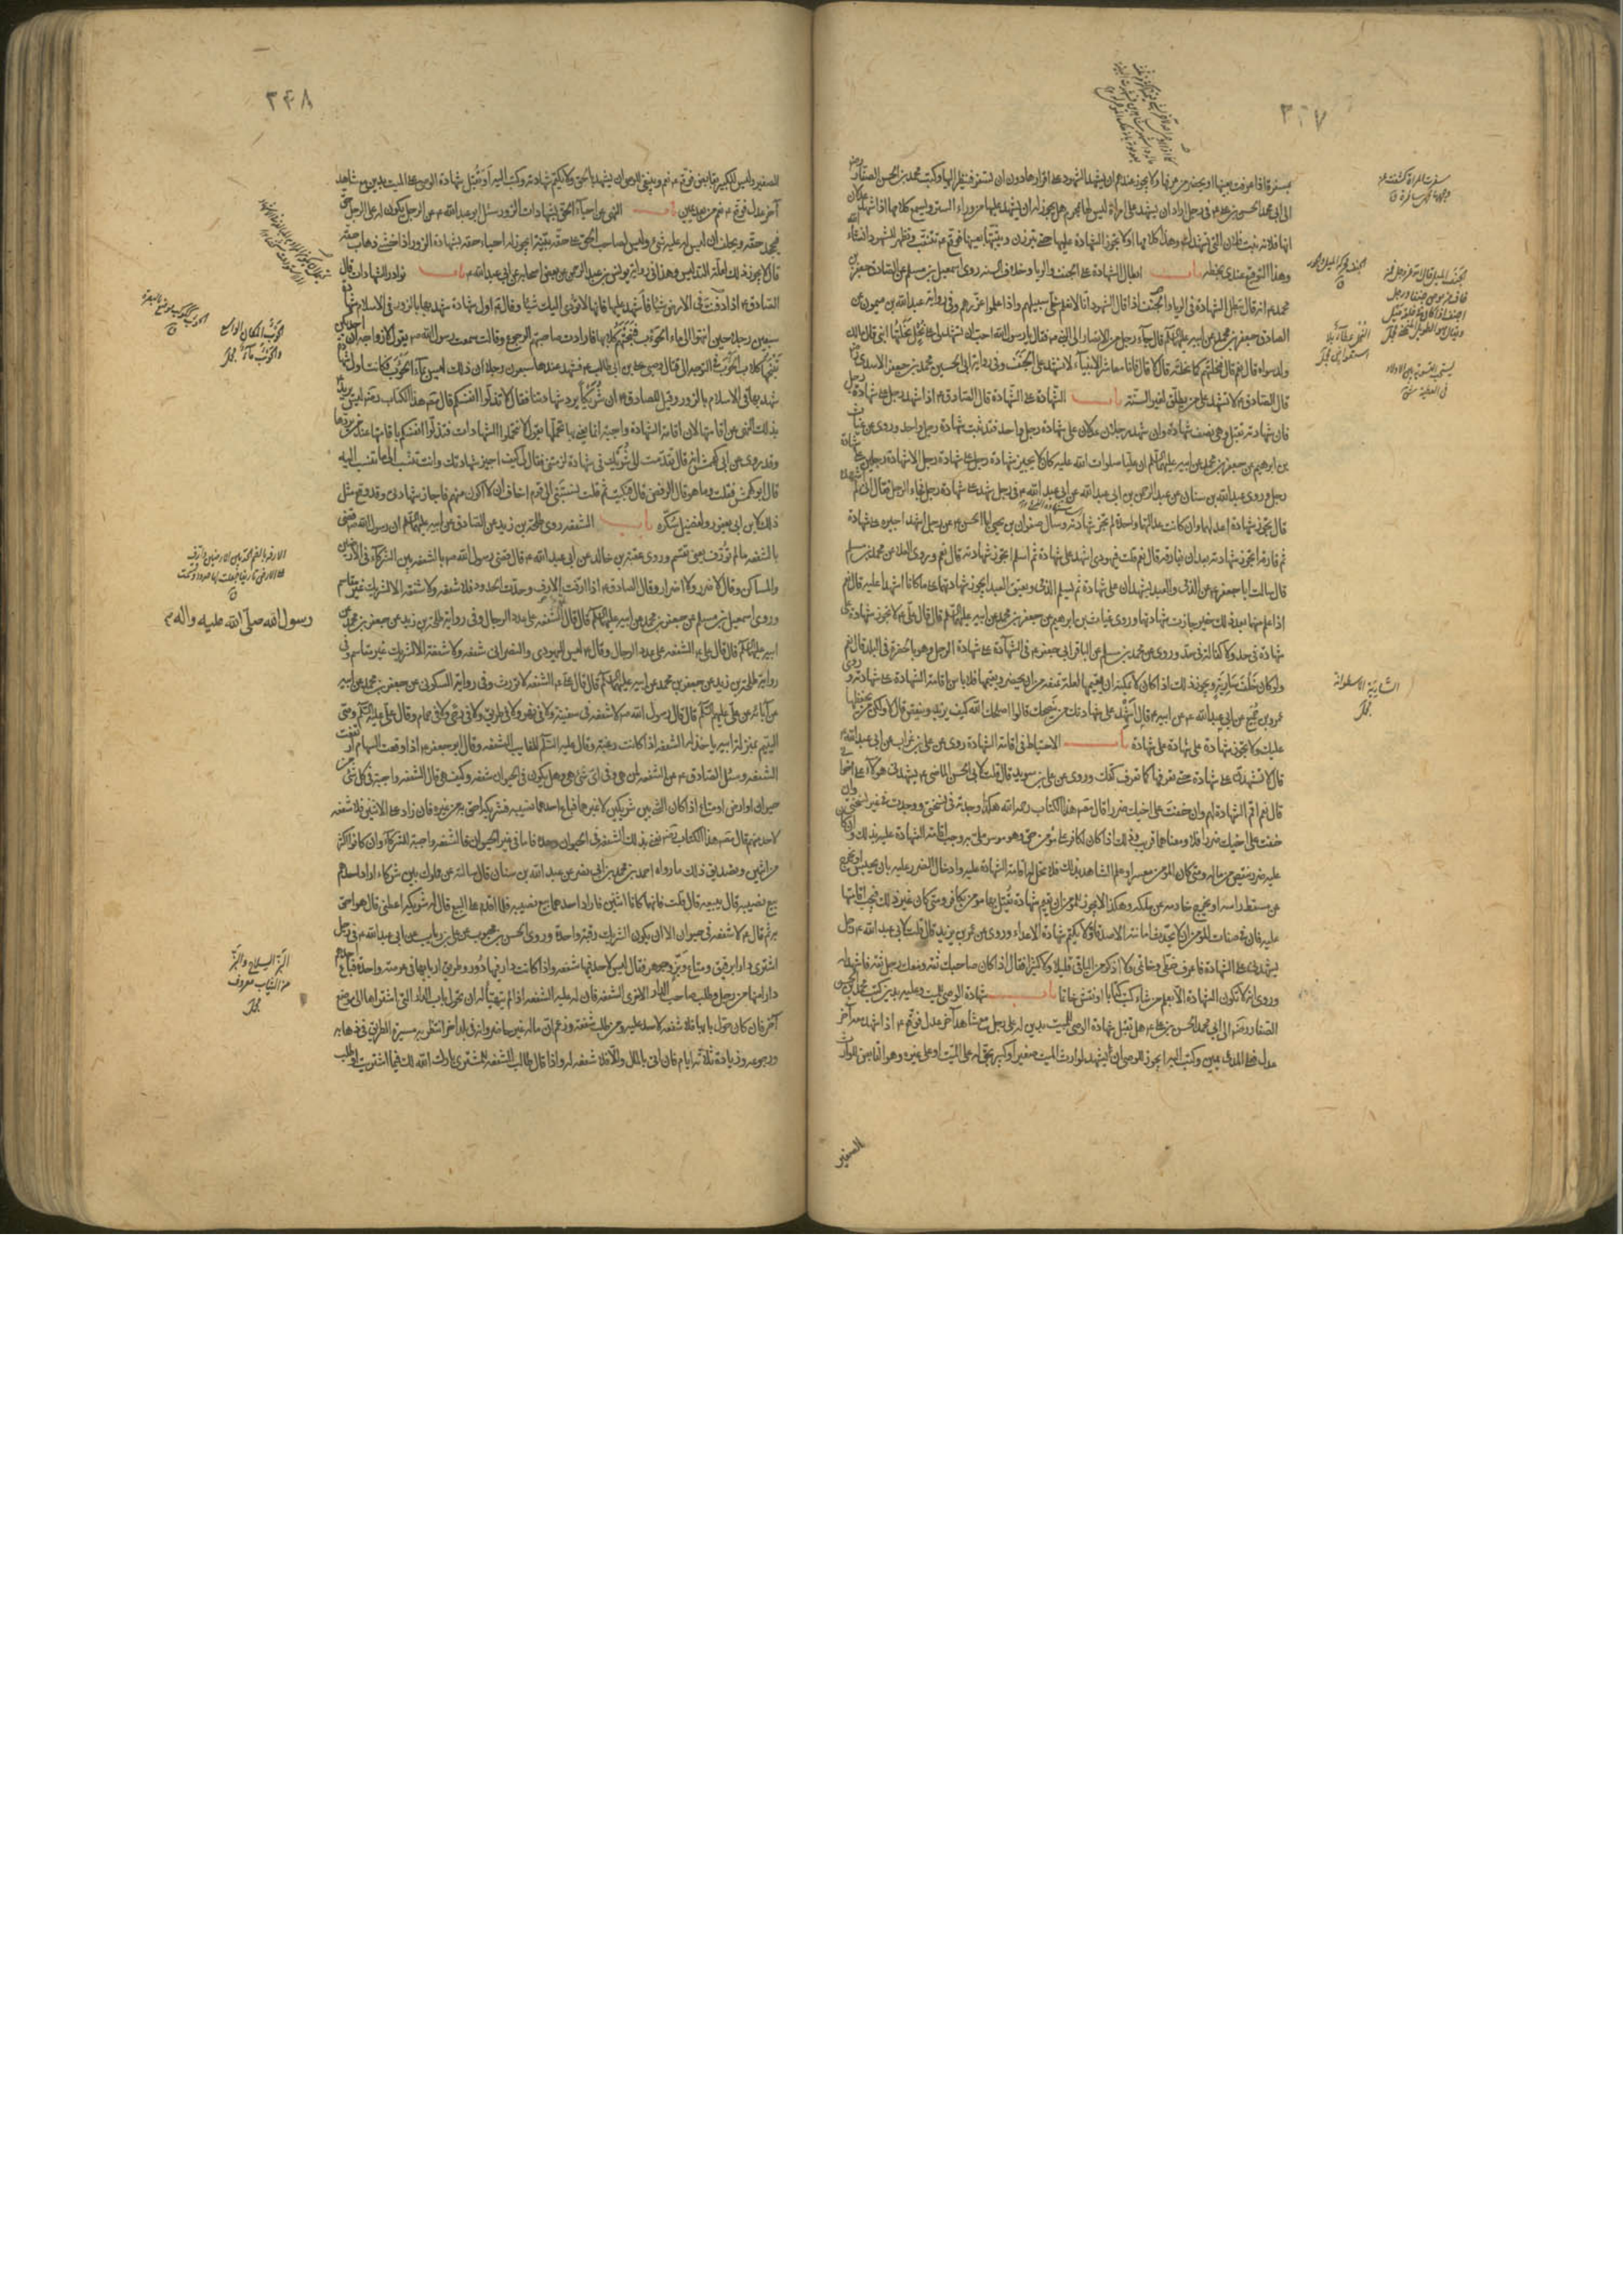 ٣٤٧
بمسفرة فاذا عرفت بعينها او يحضر من يعرفها ولا يجوز عندهم ان يشهد الشهود على اقرارها دون ان تسفر فينظر اليها وكتب محمد بن الحسن الصفار رضه
الى ابى محمد الحسن بن على ع في رجل اراد ان يشهد على امراة ليس لها بمحرم هل يجوز له ان يشهد عليها من وراء الستر ويسمع كلامها اذا شهد عدلان
انها فلانة بنت فلان التى تشهدك وهذا كلامها او لا يجوز الشهادة عليها حتى تبرزن ويثبتها بعينها فوقع ع تتنقب وتظهر للشهود انشاء الله
وهذا التوقيع عندى بخطه باب ابطال الشهادة على الجنف والربا وخلاف السنة روى اسمعيل بن مسلم عن الصادق جعفر بن
محمد ع انه قال تبطل الشهادة في الربا والجنف اذا قال الشهود انا لا نعلم خلى سبيلهم واذا علموا عزرهم وفى رواية عبدالله بن ميمون عن
الصادق جعفر بن محمد عن ابيه عليهما السلم قال جاء رجل من الانصار الى النبى ص فقال يا رسول الله احب ان تشهد لى على نحل نحلتها ابنى قال مالك
ولد سواه قال نعم قال فنحلتهم كما نحلته قال لا قال فانا معاشر الانبياء لا نشهد على الجنف وفى رواية ابى الحسين محمد بن جعفر الاسدى رض
قال الصادق ع لا تشهد على من يطلق لغير السنة باب الشهادة على الشهادة قال الصادق ع اذا شهد رجل على شهادة رجل
فان شهادته تقبل وهى نصف شهادة وان شهد رجلان عدلان على شهادة رجل واحد فقد ثبت شهادة رجل واحد وروى عن غياث
بن ابراهيم عن جعفر بن محمد عن ابيه عليهما السلم ان عليا صلوات الله عليه كان لا يجيز شهادة رجل على شهادة رجل الا شهادة رجلين على شهادة
رجل وروى عبدالله بن سنان عن عبدالرحمن بن ابى عبدالله عن ابى عبدالله ع فى رجل شهد على شهادة رجل فجاء الرجل فقال انى لم اشهده
قال يجوز شهادة اعدلهما وان كانت عدالتهما واحدة لم تجز شهادته وسال صفوان بن يحيى ابا الحسن ع عن رجل اشهد اجيره على شهادة
ثم فارقه ايجوز شهادته بعد ان يفارقه قال نعم قلت فيهودى اشهد على شهادة ثم اسلم ايجوز شهادته قال نعم وروى العلا عن محمد بن مسلم
قال سالت ابا جعفر ع عن الذمى والعبد يشهدان على شهادة ثم يسلم الذمى ويعتق العبد ايجوز شهادتهما على ما كانا اشهدا عليه قال نعم
اذا علم منهما بعد ذلك خير جازت شهادتهما وروى غياث بن ابراهيم عن جعفر بن محمد عن ابيه عليهم السلم قال قال على ع لا تجوز شهادة على
شهادة فى حد ولا كفالة فى حد وروى عن محمد بن مسلم عن الباقر ابى جعفر ع فى الشهادة على شهادة الرجل وهو بالحضرة فى البلد قال نعم
ولو كان خلف سارية ويجوز ذلك اذا كان لا يمكنه ان يقيمها لعلة تمنعه من ان يحضر ويقيمها فلا باس باقامة الشهادة على شهادته وروى
عمرو بن جميع عن ابى عبدالله ع عن ابيه ع قال اشهد على شهادتك من ينصحك قالوا اصلحك الله كيف يزيد وينقص قال لا ولكن من يحفظها
عليك ولا تجوز شهادة على شهادة على شهادة باب الاحتياط فى اقامة الشهادة روى عن على بن غراب عن ابى عبدالله ع
قال لا تشهدن على شهادة حتى تعرفها كما تعرف كفك وروى عن على بن سويد قال قلت لابى الحسن الماضى ع يشهدنى هولاء على اخوانى
قال نعم اقم الشهادة لهم وان خفت على اخيك ضررا قال مصنف هذا الكتاب رحمه الله هكذا وجدته فى نسختى ووجدت فى غير نسختى وان
خفت على اخيك ضررا فلا ومعناهما قريب وذلك اذا كان لكافر على مؤمن حق وهو موسر ملى به وجب اقامة الشهادة عليه بذلك وان كان
عليه ضرر بنقص من ماله ومتى كان المؤمن معسرا وعلم الشاهد بذلك فلا تحل له اقامة الشهادة عليه وادخال الضرر عليه بان يحبس او يخرج
عن مسقط راسه او يخرج خادمه عن ملكه وهكذا لا يجوز للمؤمن ان يقيم شهادة يقتل بها مؤمن بكافر ومتى كان غير ذلك فيجب اقامتها
عليه فان فى صفات المؤمن ان لا يحدث امانته الاصدقاء ولا يكتم شهادة الاعداء وروى عن عمر بن يزيد قال قلت لابى عبدالله ع رجل
يشهدنى على الشهادة فاعرف خطى وخاتمى ولا اذكر من الباقى قليلا ولا كثيرا فقال اذا كان صاحبك ثقة ومعك رجل ثقة فاشهد له
وروى انه لا تكون الشهادة الا بعلم من شاء كتب كتابا او نقش خاتما باب شهادة الوصى للميت وعليه بدين كتب محمد بن الحسن
الصفار رضه الى ابى محمد الحسن بن على ع هل تقبل شهادة الوصى للميت بدين له على رجل مع شاهد آخر عدل فوقع ع اذا شهد معه آخر
عدل فعلى المدعى يمين وكتب اليه ايجوز للوصى ان يشهد لوارث الميت صغيرا و كبير بحق له على الميت او على غيره وهو القابض للوارث
الصغير
الشارية الاسطوانة
٣٤٨
الصغير وليس للكبير بقابض فوقع ع نعم وينبغى للوصى ان يشهد بالحق ولا يكتم شهادته وكتب اليه او تقبل شهادة الوصى على الميت بدين مع شاهد
آخر عدل فوقع ع نعم من بعد يمين باب النهى عن احياء الحق بشهادات الزور سئل ابو عبدالله ع عن الرجل يكون له على الرجل حق
فيجحد حقه ويحلف ان ليس له عليه شئ وليس لصاحب الحق على حقه بينة ايجوز له احياء حقه بشهادة الزور اذا خشى ذهاب حقه
قال لا يجوز ذلك لعلة التدليس وهذا فى رواية يونس بن عبدالرحمن عن بعض اصحابه عن ابى عبدالله ع باب نوادر الشهادات قال
الصادق ع اذا دفنت فى الارض شيئا فاشهد عليها فانها لا تؤدى اليك شيئا وقال ع اول شهادة شهد بها بالزور فى الاسلام شهادة
سبعين رجلا حين انتهوا الى ماء الحوءب فنبحتهم كلابها فارادت صاحبتهم الرجوع وقالت سمعت رسول الله ص يقول لازواجه ان احديكن
تنبحها كلاب الحوءب فى التوجه الى قتال وصيى على بن ابى طالب ع فشهد عندها سبعون رجلا ان ذلك ليس بماء الحوءب فكانت اول شهادة
شهد بها فى الاسلام بالزور وقيل للصادق ع ان شريكا يرد شهادتنا فقال لا تذلوا انفسكم قال مصنف هذا الكتاب رضه ليس يريد
بذلك النهى عن اقامتها لان اقامة الشهادة واجبة انما يعنى بها تحملها يقول لا تتحملوا الشهادات فتذلوا انفسكم باقامتها عند من يردها
وقد روى عن ابى كهمش انه قال تقدمت الى شريك فى شهادة لزمتنى فقال لى كيف اجيز شهادتك وانت تنسب الى ما تنسب اليه
قال ابو كهمش فقلت وما هو قال الرفض قال فبكيت ثم قلت نسبتنى الى قوم اخاف ان لا اكون منهم فاجاز شهادتى وقد وقع مثل
ذلك لابن ابى يعفور ولفضيل سكرة باب الشفعة روى طلحة بن زيد عن الصادق عن ابيه عليهما السلم ان رسول الله ص قضى
بالشفعة ما لم تورف يعنى تقسم وروى عقبة بن خالد عن ابى عبدالله ع قال قضى رسول الله ص بالشفعة بين الشركاء فى الارضين
والمساكن وقال لا ضرر ولا اضرار وقال الصادق ع اذا ارفت الارف وحدت الحدود فلا شفعة ولا شفعة الا لشريك غير مقاسم
وروى اسمعيل بن مسلم عن جعفر بن محمد عن ابيه عليهما السلم قال قال الشفعة على عدد الرجال وفى رواية طلحة بن زيد عن جعفر بن محمد عن
ابيه عليهما السلم قال قال على ع الشفعة على عدد الرجال وقال ع ليس لليهودى والنصرانى شفعة ولا شفعة الا لشريك غير مقاسم وفى
رواية طلحة بن زيد عن جعفر بن محمد عن ابيه عليهما السلم قال قال على ع الشفعة لا تورث وفى رواية السكونى عن جعفر بن محمد عن ابيه
عن آبائه عن على عليهم السلم قال قال رسول الله ص لا شفعة فى سفينة ولا فى نهر ولا فى طريق ولا فى رحى ولا فى حمام وقال على عليه السلم وصى
اليتيم بمنزلة ابيه ياخذ له الشفعة اذا كانت رغبة وقال عليه السلم للغايب الشفعة وقال ابو جعفر ع اذا وقعت السهام ارتفعت
الشفعة وسئل الصادق ع عن الشفعة لمن هى وفى اى شئ هى وهل يكون فى الحيوان شفعة وكيف هى قال الشفعة واجبة فى كل شئ من
حيوان او ارض او متاع اذا كان الشئ بين شريكين لا غيرهما فباع احدهما نصيبه فشريكه احق به من غيره فان زاد على الاثنين فلا شفعة
لاحد منهم قال مصنف هذا الكتاب رضه يعنى بذلك الشفعة فى الحيوان وحده فاما فى غير الحيوان فالشفعة واجبة للشركاء وان كانوا اكثر
من اثنين وتصديق ذلك ما رواه احمد بن محمد بن ابى نصر عن عبدالله بن سنان قال سالته عن مملوك بين شركاء اراد احدهم
بيع نصيبه قال يبيعه قال قلت فانهما كانا اثنين فاراد احدهما بيع نصيبه فلما اقدم على البيع قال له شريكه اعطنى قال هو احق
به ثم قال ع لا شفعة فى حيوان الا ان يكون الشريك رقبة واحدة وروى الحسن بن محبوب عن على بن رياب عن ابى عبدالله ع فى رجل
اشترى دارا برقيق ومتاع وبز وجوهر فقال ليس لاحد فيها شفعة واذا كانت دار فيها دور وطريق اربابها فى عرصة واحدة فباع احدهم
دارا منها من رجل وطلب صاحب الدار الاخرى الشفعة فان له عليه الشفعة اذا لم يتهيأ له ان تحول باب الدار التى اشتراها الى موضع
آخر فان كان حول بابها فلا شفعة لاحد عليه ومن طلب شفعة وزعم ان ماله غير حاضر وانه فى بلد اخر انتظر به مسيرة الطريق فى ذهابه
ورجوعه وزيادة ثلاثة ايام فان اتى بالمال والا فلا شفعة له واذا قال طالب الشفعة للمشترى بارك الله لك فيما اشتريت او طلب
رسول الله صلى الله عليه واله م